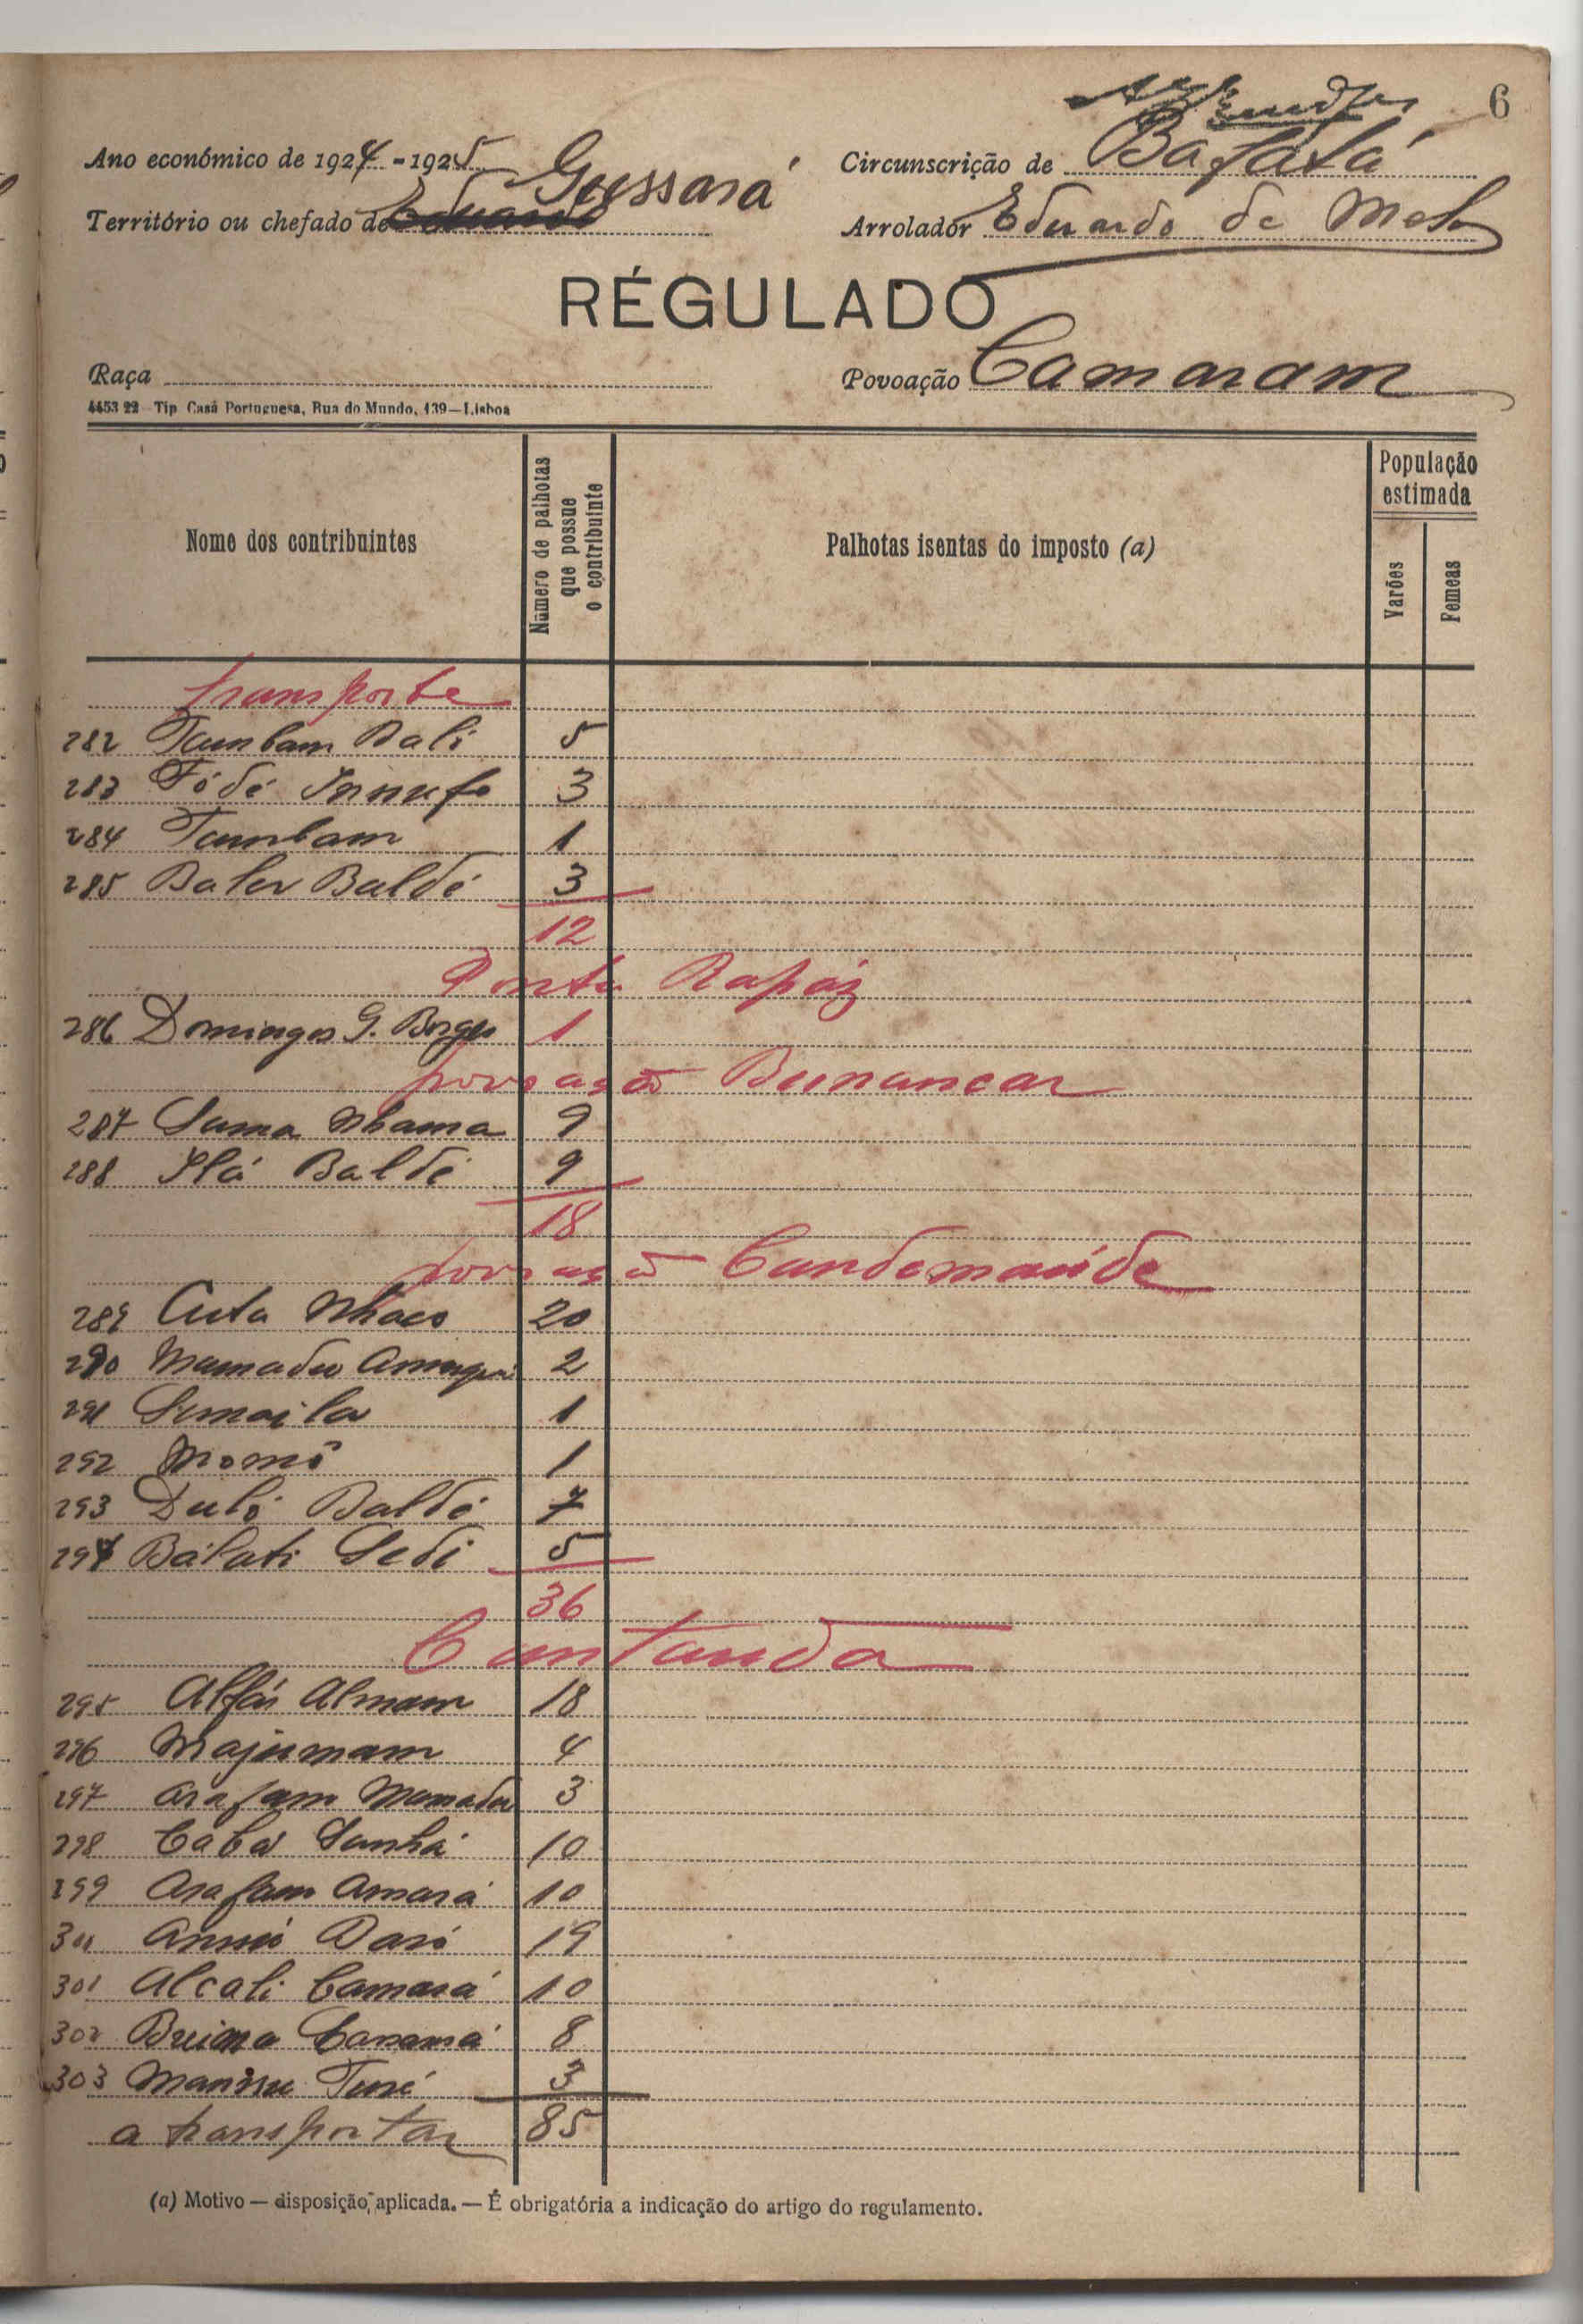 6
Ano económico de 1924-1925 Circunscrição de Bafatá
Gussará
Território ou chefado de Eduardo Arrolador Eduardo de Melo
RÉGULADO
Raça Povoação Camaram
4453 22 Tip. Casa Portuguesa, Rua do Mundo, 139—Lisboa
Nome dos contribuintes
Número de palhotas que possue o contribuinte
Palhotas isentas do imposto (a)
População estimada
Varões
Femeas
transporte
282 Tumbam Bali 5
283 Fódé 3
284 Tumbam 1
285 Baldé 3
12
Ponta Rapáz
286 Domingos G. Borges 1
povoação Bunancar
287 Suma Nhama 9
288 Ilá Baldé 9
18
povoação Candemaúde
289 Cuta 20
290 Mamadu 2
291 1
292 Momó 1
293 Duló Baldé 7
294 Bálati Sedi 5
36
Cantauda
295 Alfá Almam 18
296 Majumam 4
297 Arafam Mamadu 3
298 Cabá Sanhá 10
299 Arafam Amará 10
300 19
301 Alcali Camará 10
302 Bruima 8
303 Turé 3
a transportar 85
(a) Motivo — disposição, aplicada. — É obrigatória a indicação do artigo do regulamento.